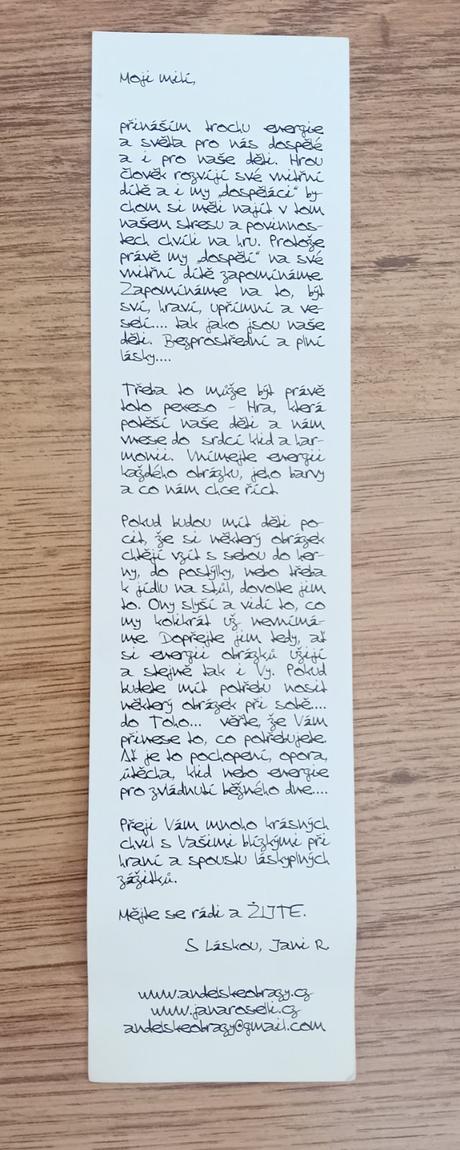 Moji milí,
přináším trochu energie
a světla pro nás dospělé
a i pro naše děti. Hrou
člověk rozvíjí své vnitřní
dítě a i my „dospěláci" by-
chom si měli najít v tom
našem stresu a povinnos-
tech chvíli na hru. Protože
právě my „dospělí" na své
vnitřní dítě zapomínáme.
Zapomínáme na to, být
sví, hraví, upřímní a ve-
selí.... tak jako jsou naše
děti. Bezprostřední a plní
lásky....
Třeba to může být právě
toto pexeso - Hra, která
potěší naše děti a nám
vnese do srdcí klid a har-
monii. Vnímejte energii
každého obrázku, jeho barvy
a co nám chce říct.
Pokud budou mít děti po-
cit, že si některý obrázek
chtějí vzít s sebou do her-
ny, do postýlky, nebo třeba
k jídlu na stůl, dovolte jim
to. Ony slyší a vidí to, co
my kolikrát už nevnímá-
me. Dopřejte jim tedy, ať
si energii obrázků užijí
a stejně tak i Vy. Pokud
budete mít potřebu nosit
některý obrázek při sobě....
do Toho... věřte, že Vám
přinese to, co potřebujete.
Ať je to pochopení, opora,
útěcha, klid nebo energie
pro zvládnutí běžného dne....
Přeji Vám mnoho krásných
chvil s Vašimi blízkými při
hraní a spoustu láskyplných
zážitků.
Mějte se rádi a ŽIJTE.
S Láskou, Jani R.
www.andelskeobrazy.cz
www.janaroselli.cz
andelskeobrazy@gmail.com